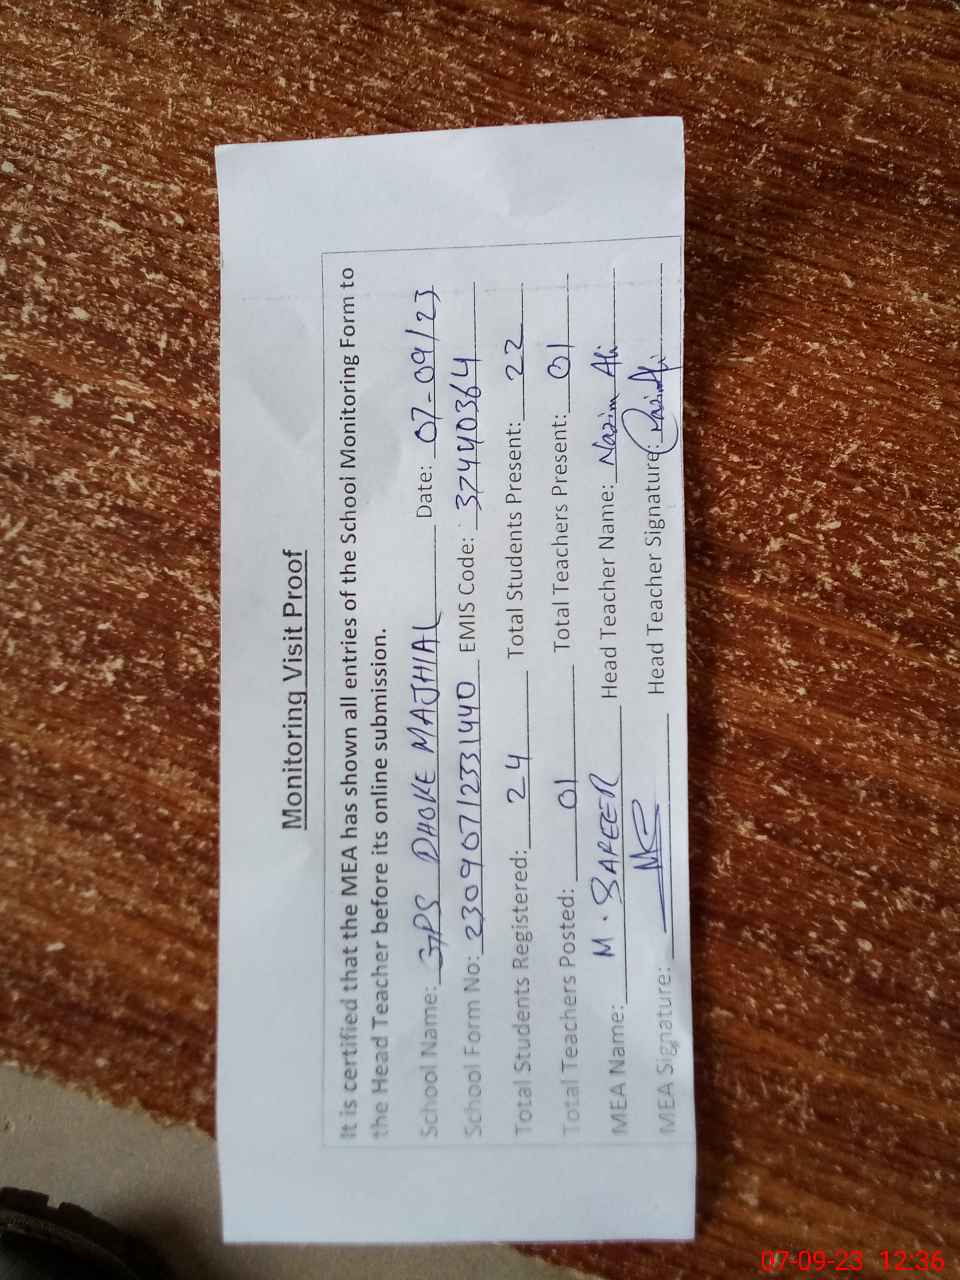 Monitoring Visit Proof
It is certified that the MEA has shown all entries of the School Monitoring Form to
the Head Teacher before its online submission.
School Name: GPS DHOKE MAJHIAL Date: 07-09/23
School Form No: 23090712331440 EMIS Code: 37440364
Total Students Registered: 24 Total Students Present: 22
Total Teachers Posted: 01 Total Teachers Present: 01
MEA Name: M. SAFEER Head Teacher Name: Nazim Ali
MEA Signature: MS Head Teacher Signature: Nazim Ali
07-09-23 12:36